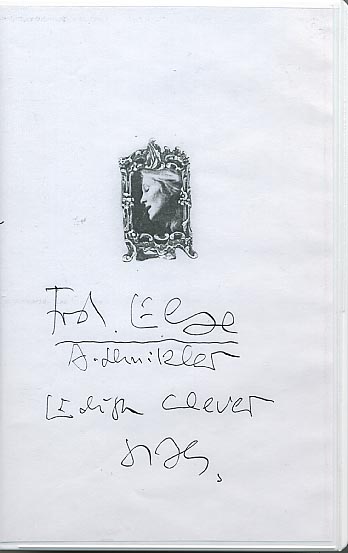 Frl. Else
A. Schnitzler
Edith Clever